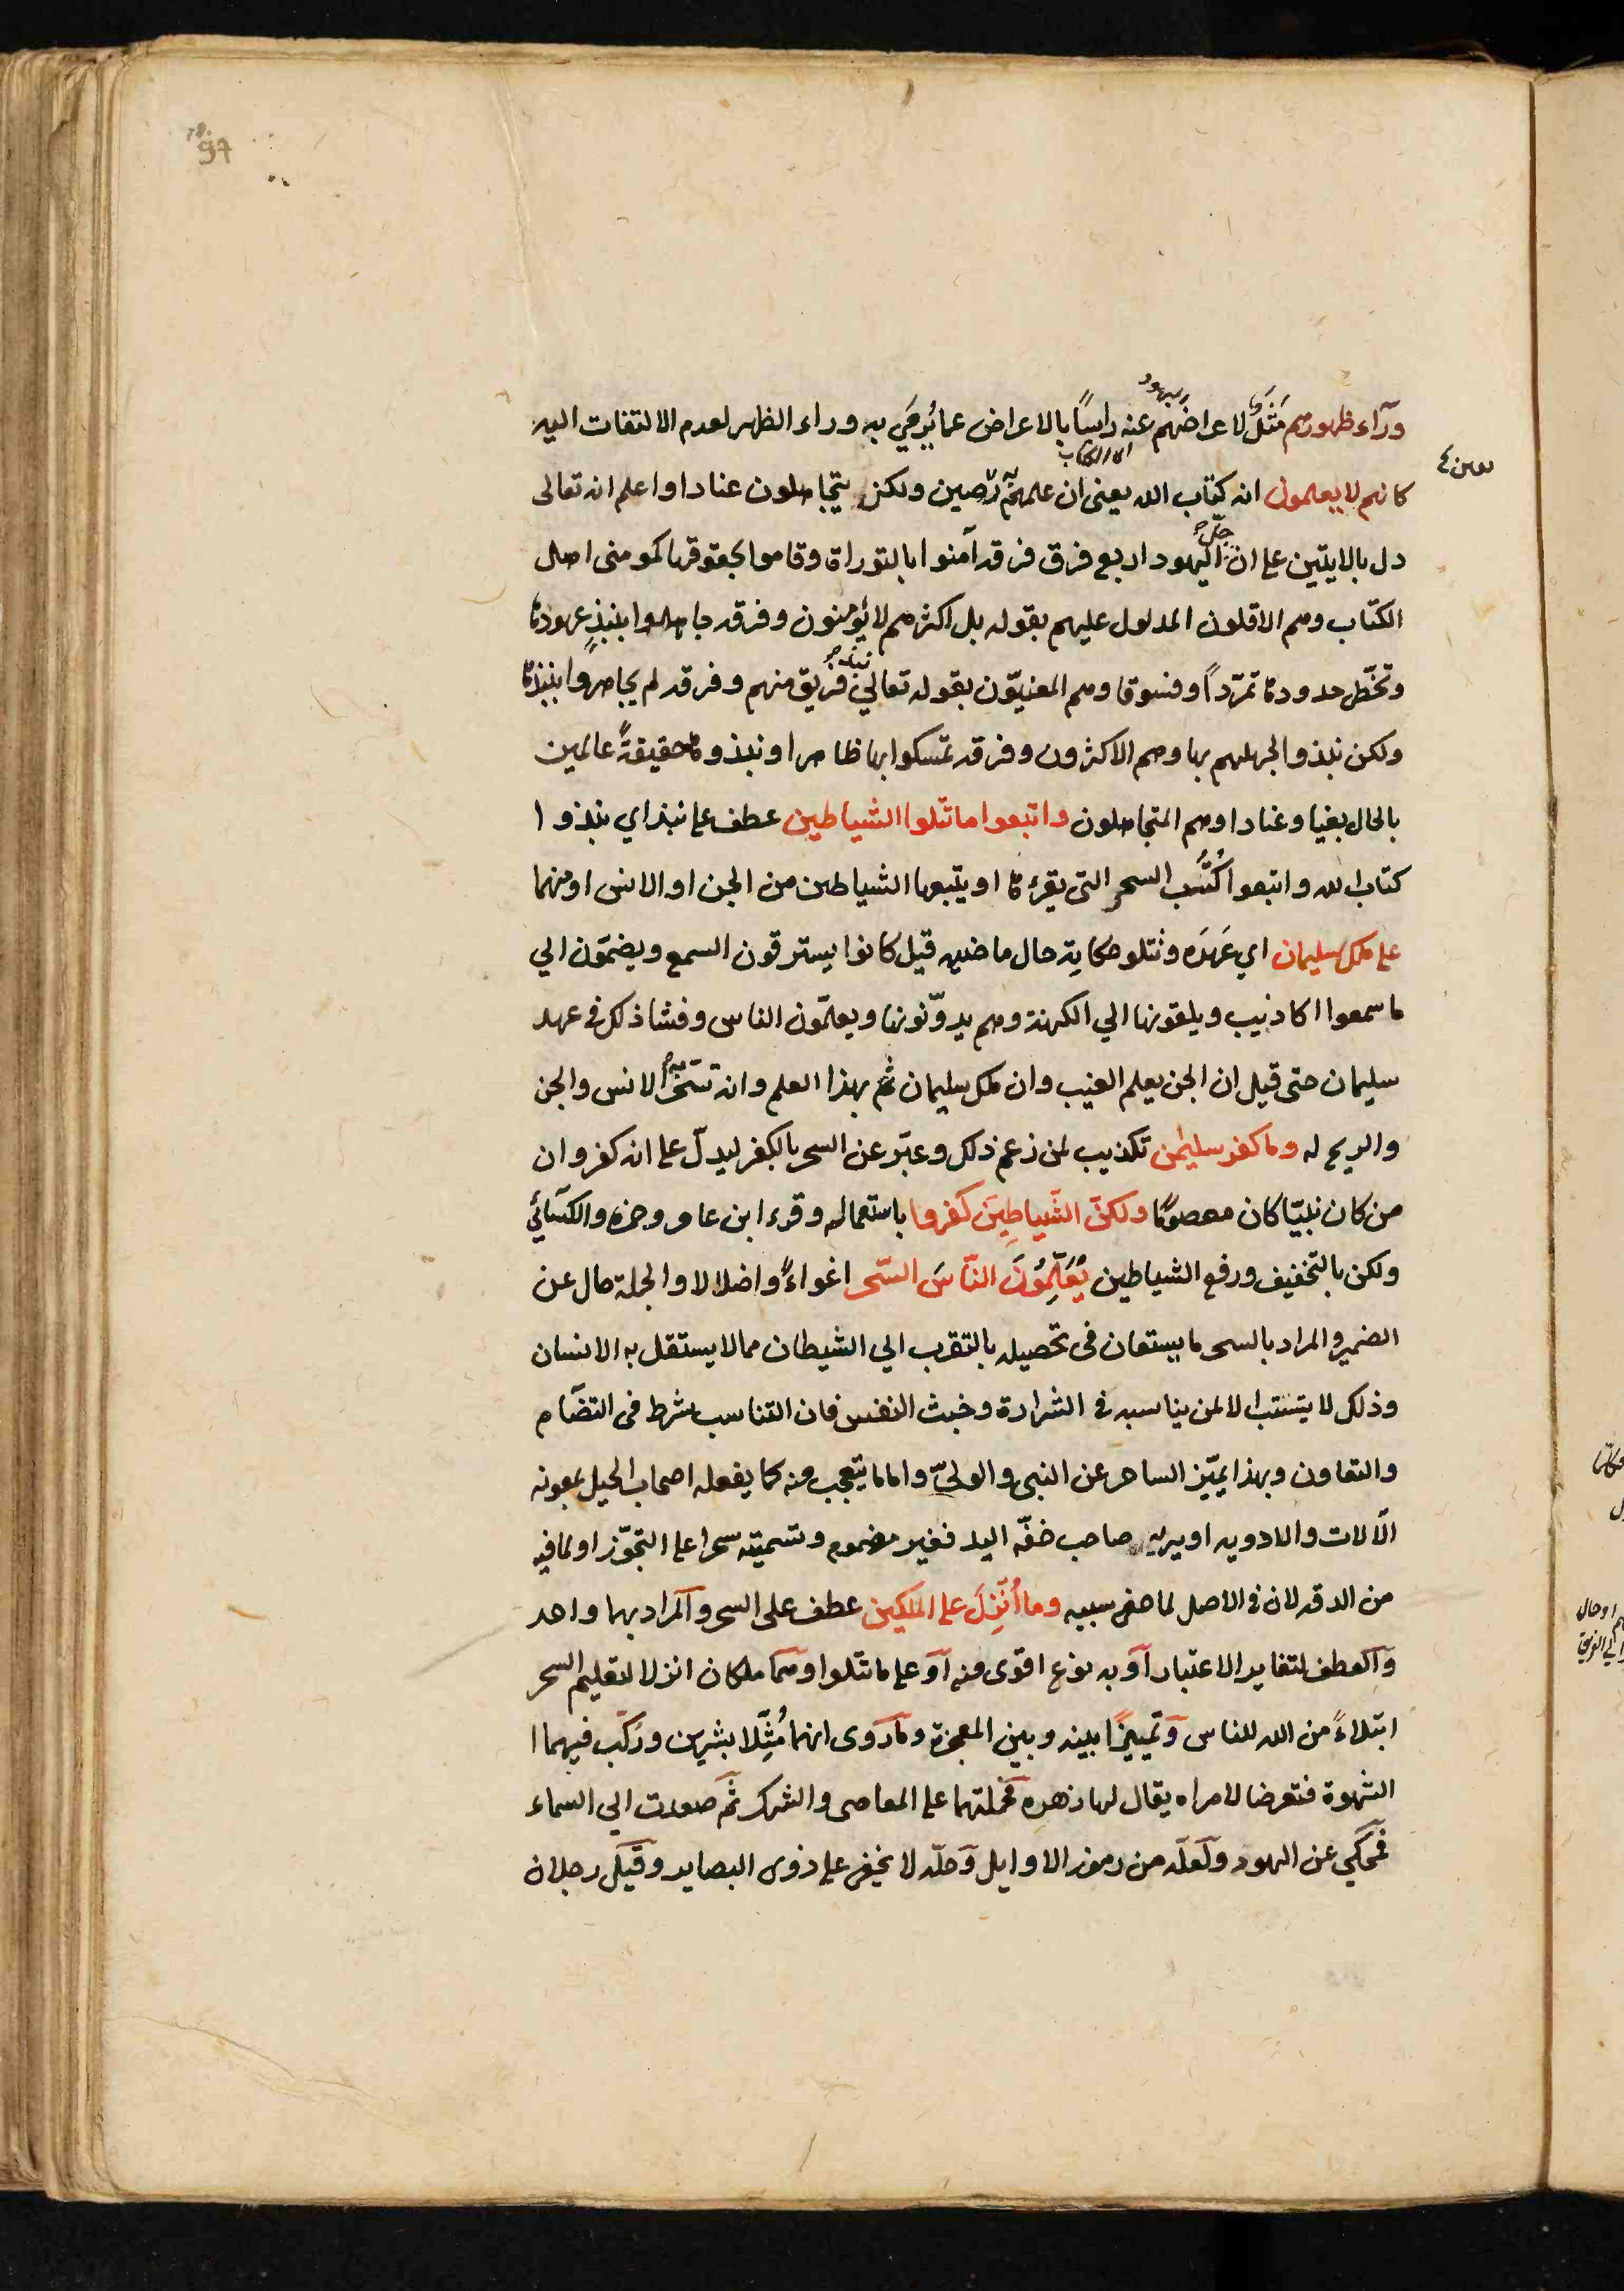 97
وراء ظهورهم مَثَلٌ لاعراضهم عنه راسًا بالاعراض عما يُرمَي به وراء الظهر لعدم الالتفات اليه
كانهم لا يعلمون انه كتاب الله يعنى ان علمهم به رصين ولكن يتجاهلون عنادا واعلم انه تعالى
دل بالايتين على ان جلّ اليهود اربع فرق فرقه آمنوا بالتوراة وقاموا بحقوقها كمومنى اهل
الكتاب وهم الاقلون المدلول عليهم بقوله بل اكثرهم لا يؤمنون وفرقه جاهروا بنبذِ عهودها
وتخطّى حدودها تمرّداً وفسوقا وهم المعنيّون بقوله تعالي نبذه فريق منهم وفرقه لم يجاهروا بنبذها
ولكن نبذوا لجهلهم بها وهم الاكثرون وفرقه تمسكوا بها ظاهرا ونبذوها حقيقةً عالمين
بالحال بغيا وعنادا وهم المتجاهلون واتبعوا ما تتلوا الشياطين عطف على نبذ اي نبذوا
كتاب الله واتبعوا كُتُب السحر التى يقرءها او يتبعها الشياطين من الجن او الانس او منهما
على ملك سليمان اي عَهدَه وتتلو حكاية حال ماضيه قيل كانوا يسترقون السمع ويضمّون الي
ما سمعوا اكاذيب ويلقونها الي الكهنة وهم يدوّنونها ويعلمّون الناس وفشا ذلك فى عهد
سليمان حتى قيل ان الجن يعلم الغيب وان ملك سليمان تم بهذا العلم وانه تسخّر به الانس والجن
والريح له وما كفر سليمٰن تكذيب لمن زعم ذلك وعبّر عن السحر بالكفر ليدلّ على انه كفر وان
من كان نبيّا كان معصومًا ولكنّ الشَّياطِينَ كفروا باستعماله وقرء ابن عامر وحمزه والكسائي
ولكن بالتخفيف ورفع الشياطين يُعَلِّمُونَ النّاسَ السّحر اغواءً واضلالا والجملة حال عن
الضمير والمراد بالسحر ما يستعان فى تحصيله بالتقرب الي الشيطان مما لا يستقل به الانسان
وذلك لا يستتب الا لمن يناسبه فى الشرارة وخبث النفس فان التناسب شرط فى التضّام
والتعاون وبهذا يميّز الساحر عن النبى والوليّ واما ما يتعجب منه كما يفعله اصحاب الحيل بمعونه
الآلات والادويه او يريه صاحب خفّه اليد فغير مذموم وتسميته سحرا على التجوّز او لما فيه
من الدقه لانه فى الاصل لما خفى سببه وما أُنْزِلَ على الملكين عطف على السحر والمراد بهما واحد
والعطف لتغاير الاعتبار او به نوع اقوى منه او على ما تتلوا وهما ملكان انزلا لتعليم السحر
ابتلاءً من الله للناس وتمييزًا بينه وبين المعجزة وما روى انهما مُثّلا بشرين ورُكّب فيهما
الشهوة فتعرضا لامراه يقال لها زهره فحملتهما على المعاصى والشرك ثم صعدت الى السماء
فمحكي عن اليهود ولعله من رموز الاوايل وحلّه لا يخفى على ذوى البصاير وقيل رجلان